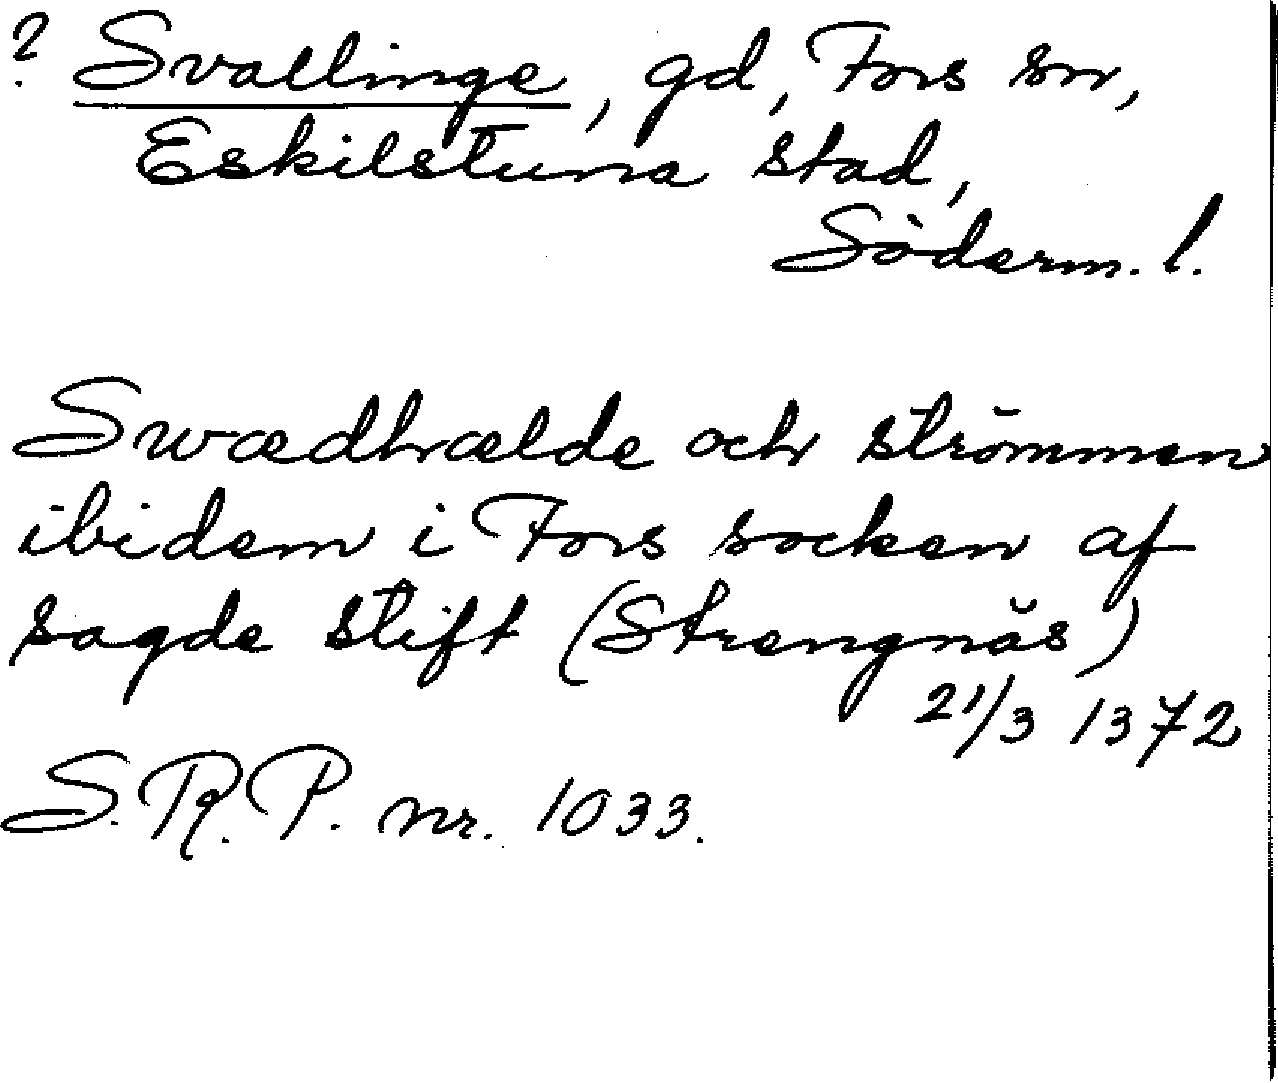 ? Svallinge, gd, Fors sn,
Eskilstuna stad,
Söderm. l.
Swædhrælde och strömmen
ibidem i Fors socken af
sagde stift (Strengnäs)
21/3 1372
S.R.P. nr. 1033.